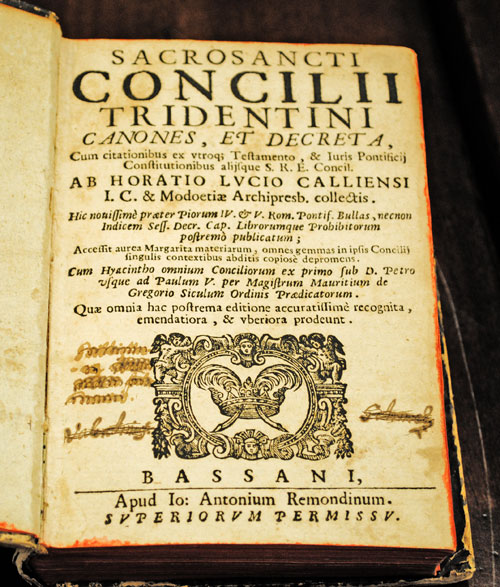 SACROSANCTI
CONCILII
TRIDENTINI
CANONES, ET DECRETA,
Cum citationibus ex vtroq; Testamento, & Iuris Pontificij
Constitutionibus alijsque S. R. E. Concil.
AB HORATIO LVCIO CALLIENSI
I. C. & Modoetiæ Archipresb. collectis.
Hic nouissimè præter Piorum IV. & V. Rom. Pontif. Bullas, necnon
Indicem Sess. Decr. Cap. Librorumque Prohibitorum
postremò publicatum;
Accessit aurea Margarita materiarum, omnes gemmas in ipsis Concilij
singulis contextibus abditis copiosè depromens.
Cum Hyacintho omnium Conciliorum ex primo sub D. Petro
vsque ad Paulum V. per Magistrum Mauritium de
Gregorio Siculum Ordinis Prædicatorum.
Quæ omnia hac postrema editione accuratissimè recognita,
emendatiora, & vberiora prodeunt.
BASSANI,
Apud Io: Antonium Remondinum.
SVPERIORVM PERMISSV.